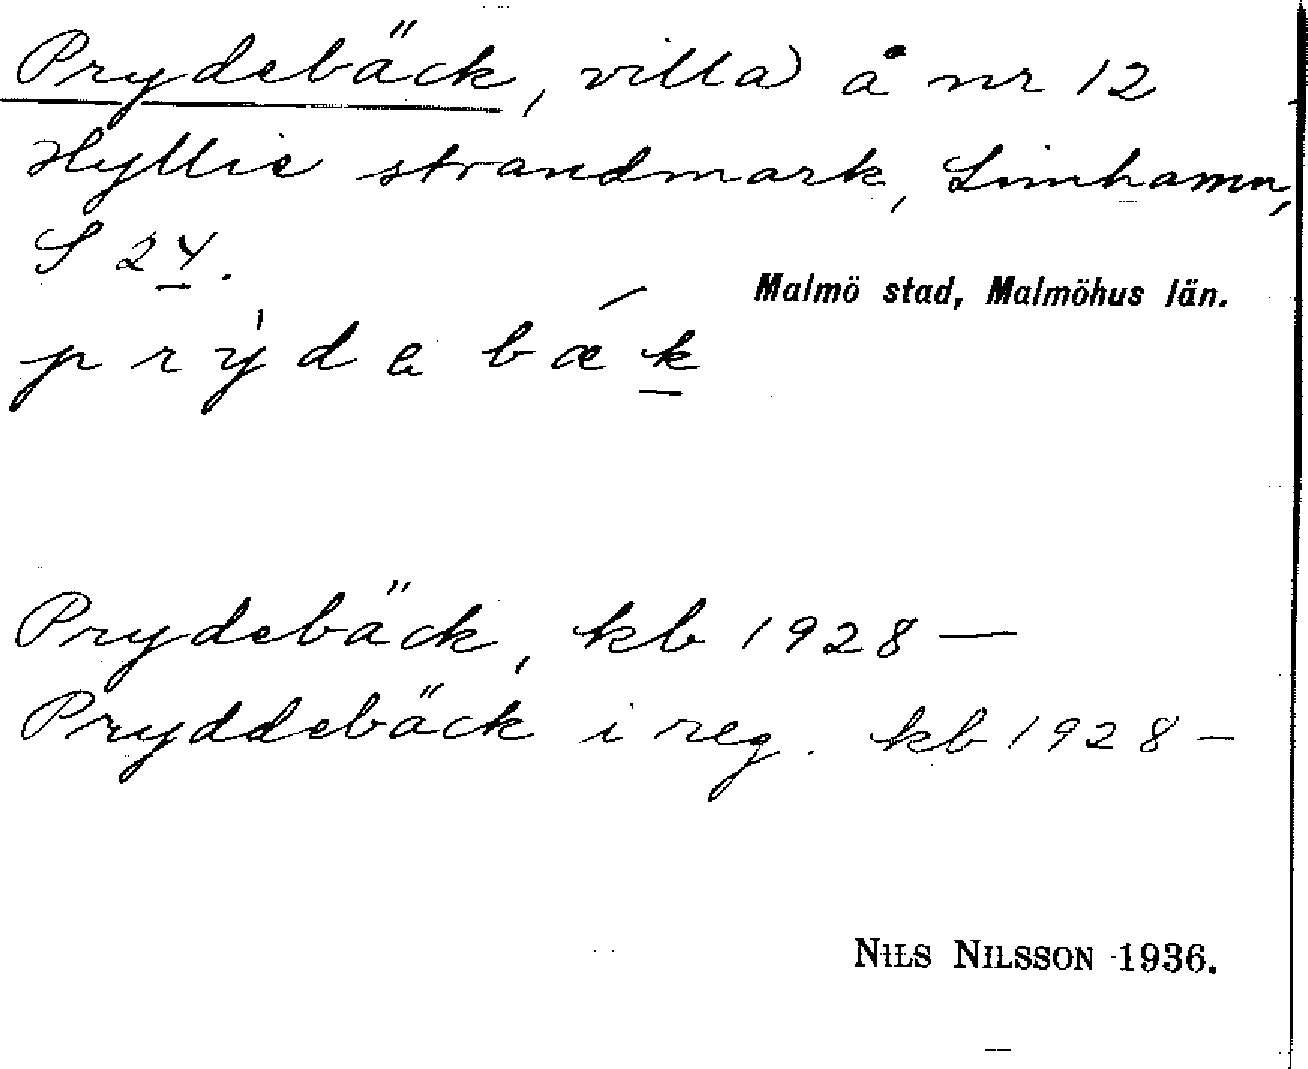 Prydebäck, villa å nr 12
Hyllie strandmark, Limhamn,
S 24.
Malmö stad, Malmöhus län.
prýdabæ´k
Prydebäck, kb 1928 —
Pryddebäck i reg. kb 1928 –
NILS NILSSON 1936.